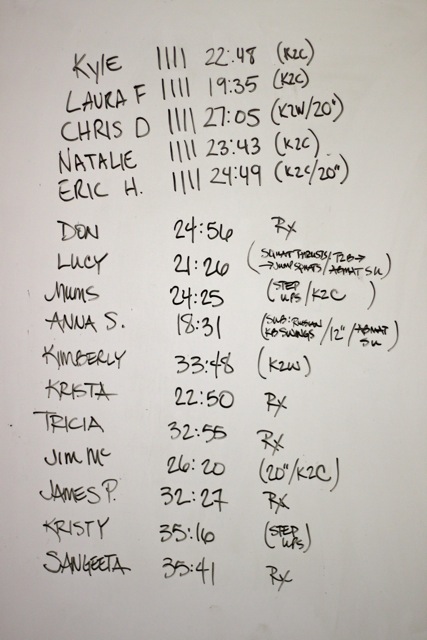 KYLE |||| 22:48 (K2C)
LAURA F |||| 19:35 (K2C)
CHRIS D |||| 27:05 (K2W/20")
NATALIE |||| 23:43 (K2C)
ERIC H. |||| 24:49 (K2C/20")
DON 24:56 Rx
LUCY 21:26 (SQUAT THRUSTS/T2B→
→JUMP SQUATS/ABMAT SU)
MUMS 24:25 (STEP UPS/K2C)
ANNA S. 18:31 (SUB: RUSSIAN KB SWINGS/12"/ABMAT SU)
KIMBERLY 33:48 (K2W)
KRISTA 22:50 Rx
TRICIA 32:55 Rx
JIM Mc 26:20 (20"/K2C)
JAMES P. 32:27 Rx
KRISTY 35:16 (STEP UPS)
SANGEETA 35:41 Rx